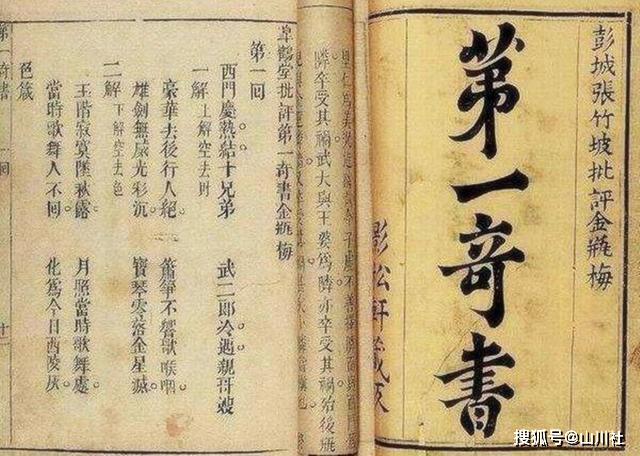 彭城張竹坡批評金瓶梅
第一奇書
影松軒藏板
隣卒受其禍武大與王婆爲隣亦卒受其禍
皐鶴堂批評第一奇書金瓶梅
第一回
西門慶熱結十兄弟 武二郎冷遇親哥嫂
一解 上解空去財
豪華去後行人絕 簫箏不響歌喉咽
雄劍無威光彩沉 寶琴零落金星滅
二解 下解空去色
玉階寂寞墜秋露 月照當時歌舞處
當時歌舞人不回 化爲今日西陵灰
色箴
第一奇書 一回
搜狐号@山川社